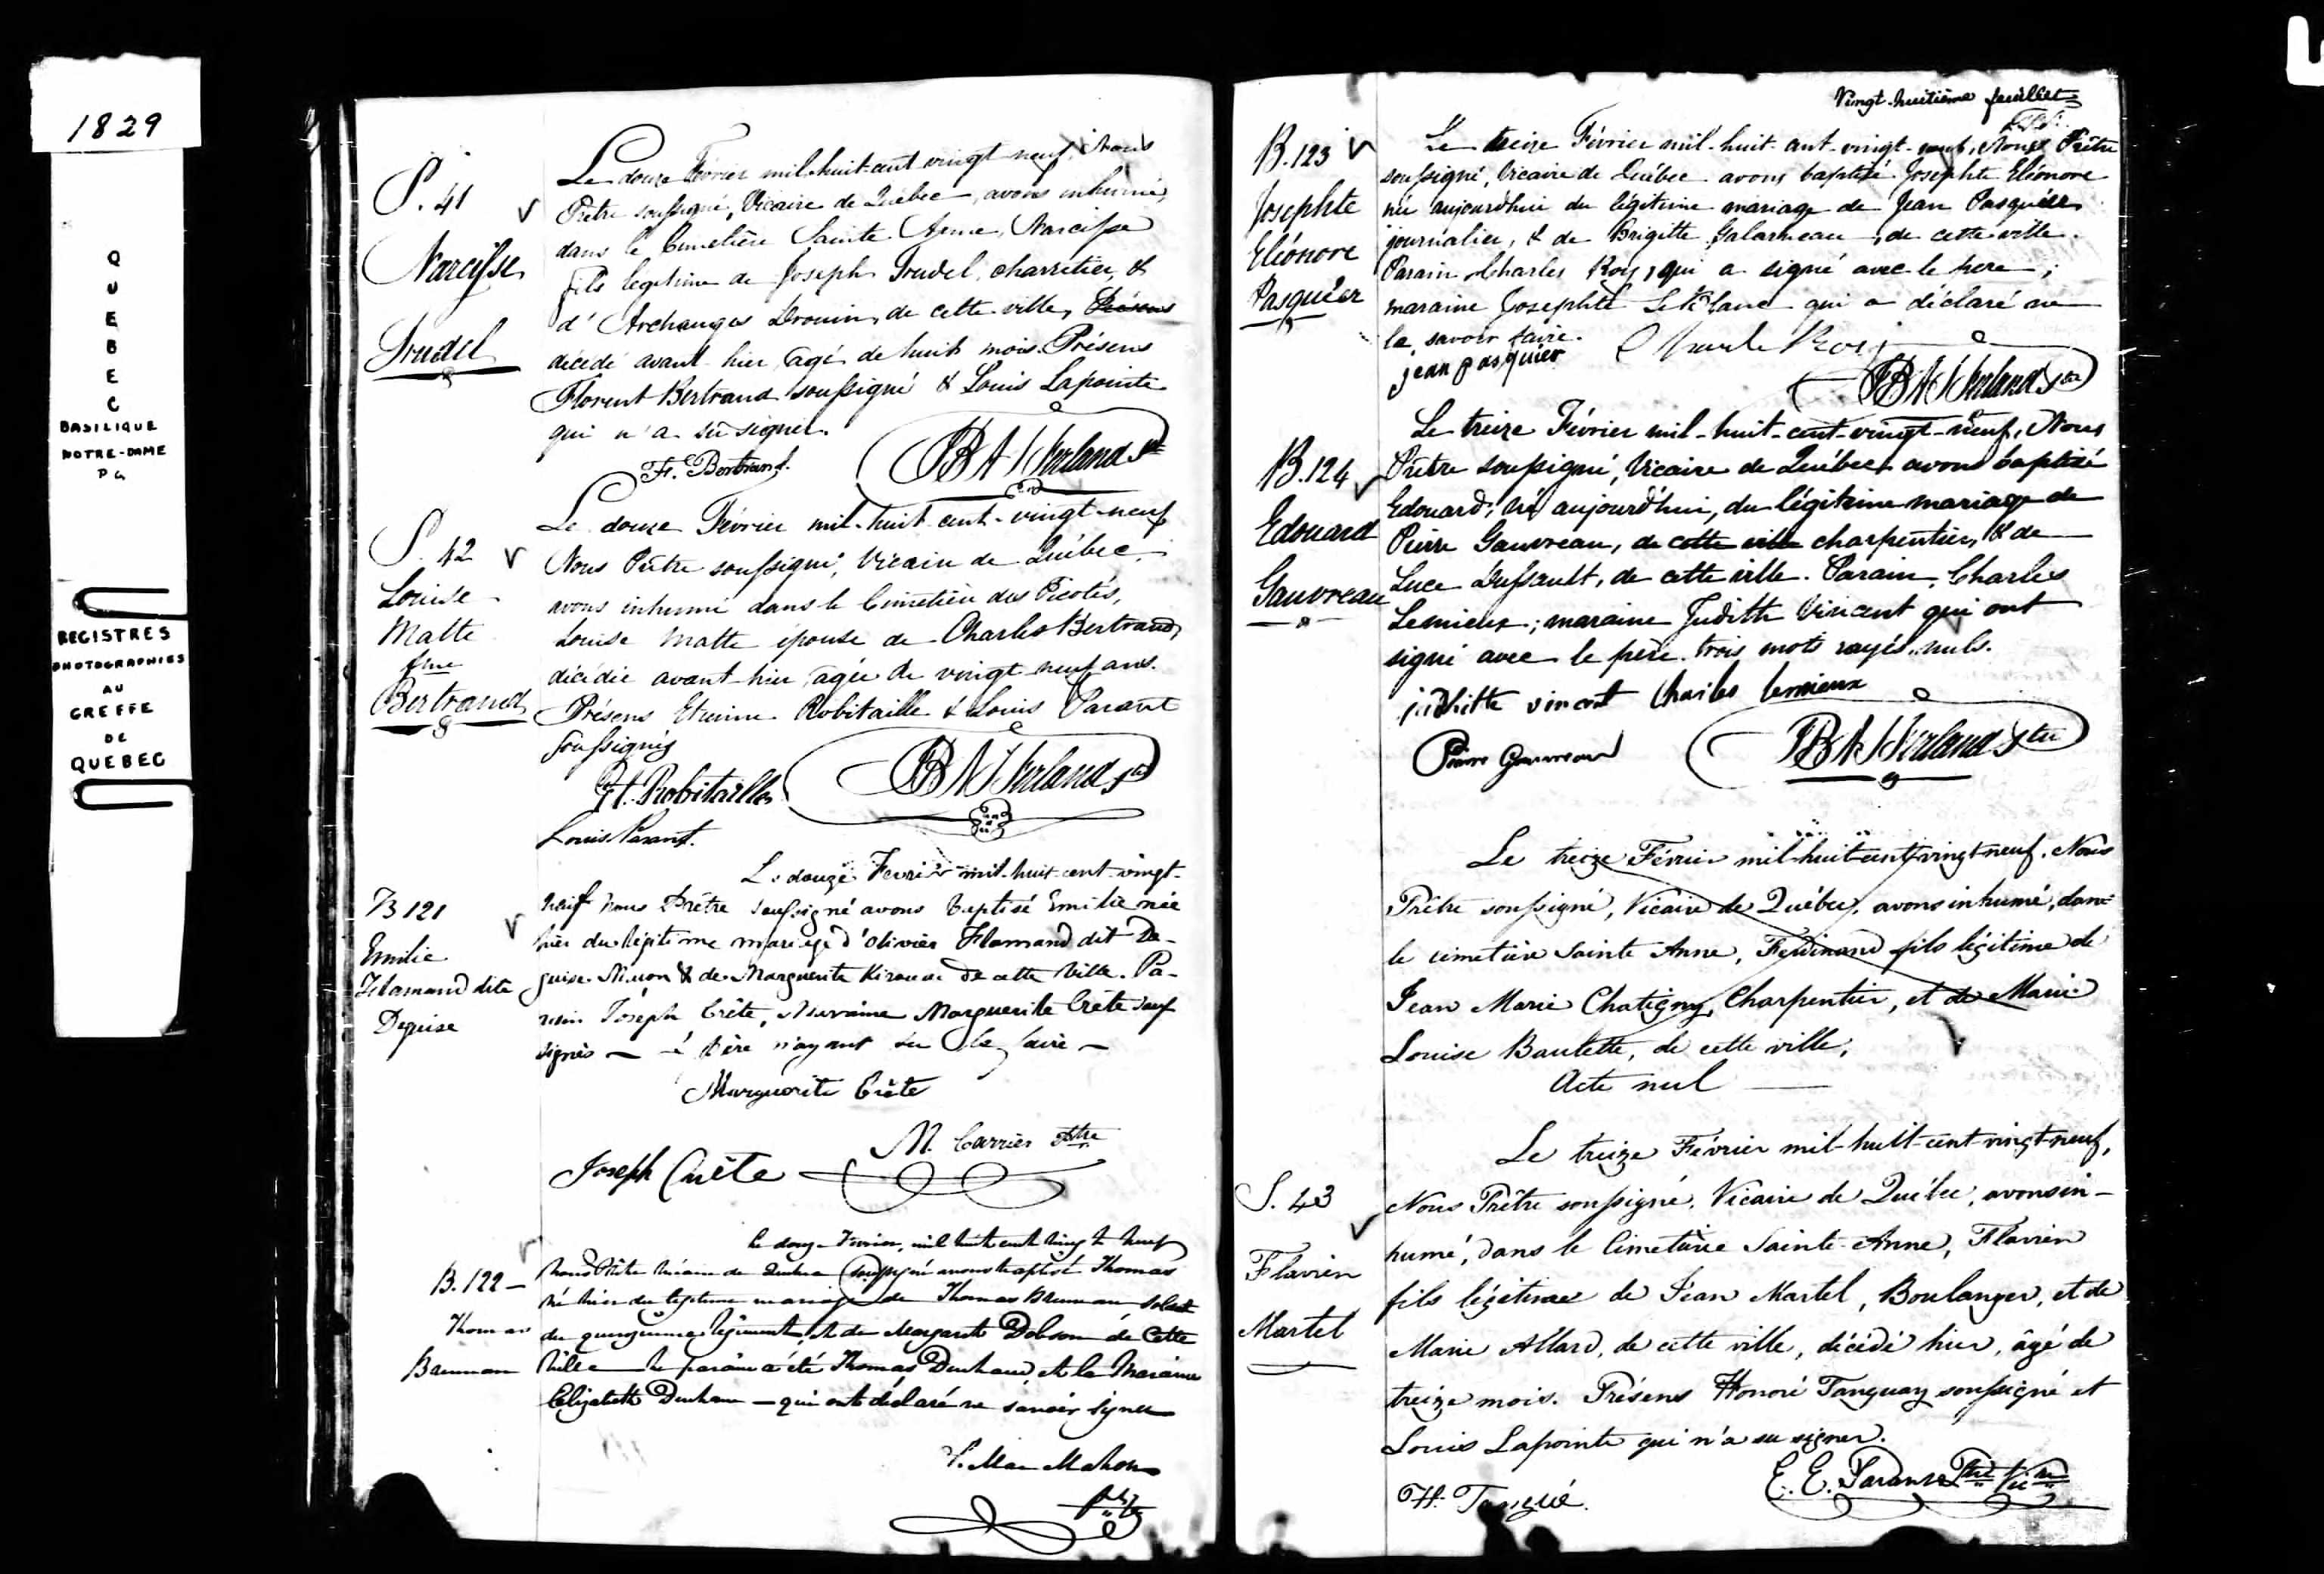 1829
QUEBEC
BASILIQUE
NOTRE-DAME
REGISTRES
PHOTOGRAPHIES
AU
GREFFE
DE
QUEBEC
S. 41
Narcisse
Trudel
Le douze Février mil-huit-cent vingt-neuf, Nous
Prêtre soussigné, Vicaire de Québec, avons inhumé,
dans le Cimetière Sainte Anne, Narcisse
fils légitime de Joseph Trudel, charretier, &
d'Archanges Drouin, de cette ville,
décédé avant-hier, âgé de huit mois. Présens
Florent Bertrand soussigné & Louis Lapointe
qui n'a su signer.
Ft. Bertrand. JBA Ferland Ptre
S. 42
Louise
Matte
fme
Bertrand
Le douze Février mil-huit-cent-vingt-neuf
Nous Prêtre soussigné, Vicaire de Québec,
avons inhumé dans le Cimetière des Picotés,
Louise Matte épouse de Charles Bertrand,
décédée avant-hier, agée de vingt-neuf ans.
Présens Etienne Robitaille & Louis Parant
soussignés
Et. Robitaille JBA Ferland Ptre
Louis Parant.
B 121
Emilie
Flamand dite
Deguise
Le douze Fevrier mil-huit-cent-vingt-
neuf nous Prêtre soussigné avons baptisé Emilie née
hier du légitime mariage d'Olivier Flamand dit De-
guise & de Marguerite Kirouac de cette ville. Pa-
rain Joseph Crête, Maraine Marguerite Crête sous
signés — le Père n'ayant su le faire —
Marguerite Crête
M. Carrier Ptre
Joseph Crête
B. 122 —
Thomas
Brennan
Le douze Fevrier, mil huit cent vingt neuf
nous Prêtre Vicaire de Quebec soussigné avons baptisé Thomas
né hier du legitime mariage de Thomas Brennan soldat
du quinzieme regiment, & de Margaret Dobson de cette
ville — le parain a été Thomas Denham, et la Maraine
Elizabeth Denham — qui ont déclaré ne savoir signer
P. Mac Mahon
ptre
Vingt-huitième feuillet
B. 123
Josephte
Eléonore
Pasquier
Le treize Février mil-huit-cent-vingt-neuf, Nous Prêtre
soussigné, Vicaire de Québec avons baptisé Josephte Eléonore
née aujourdhui du légitime mariage de Jean Pasquier
journalier, & de Brigitte Galarneau, de cette ville.
Parain Charles Roy, qui a signé avec le père;
maraine Josephte LeBlanc qui a déclaré ne
le savoir faire.
jean pasquier Charle Roy
JBA Ferland Ptre
B. 124
Edouard
Gauvreau
Le treize Février mil-huit-cent-vingt-neuf, Nous
Prêtre soussigné, Vicaire de Québec avons baptisé
Edouard, né aujourd'hui, du légitime mariage de
Pierre Gauvreau, de cette ville charpentier, & de
Luce Dussault, de cette ville. Parain, Charles
Lemieux; maraine Judith Vincent qui ont
signé avec le père. trois mots rayés nuls.
judhitte vincent Charles lemieux
Pierre Gauvreau JBA Ferland Ptre
Le treize Février mil-huit-cent-vingt-neuf. Nous
Prêtre soussigné, Vicaire de Québec, avons inhumé, dans
le cimetière Sainte Anne, Ferdinand fils légitime de
Jean Marie Chatigny, Charpentier, et de Marie
Louise Bautette, de cette ville,
Acte nul —
S. 43
Flavien
Martel
Le treize Février mil-huit-cent-vingt-neuf,
Nous Prêtre soussigné, Vicaire de Québec, avons in-
humé, dans le Cimetière Sainte-Anne, Flavien
fils légitime de Jean Martel, Boulanger, et de
Marie Allard, de cette ville, décédé hier, âgé de
treize mois. Présens Honoré Tanguay soussigné et
Louis Lapointe qui n'a su signer.
H. Tangué. E. E. Parant Ptre Vic.